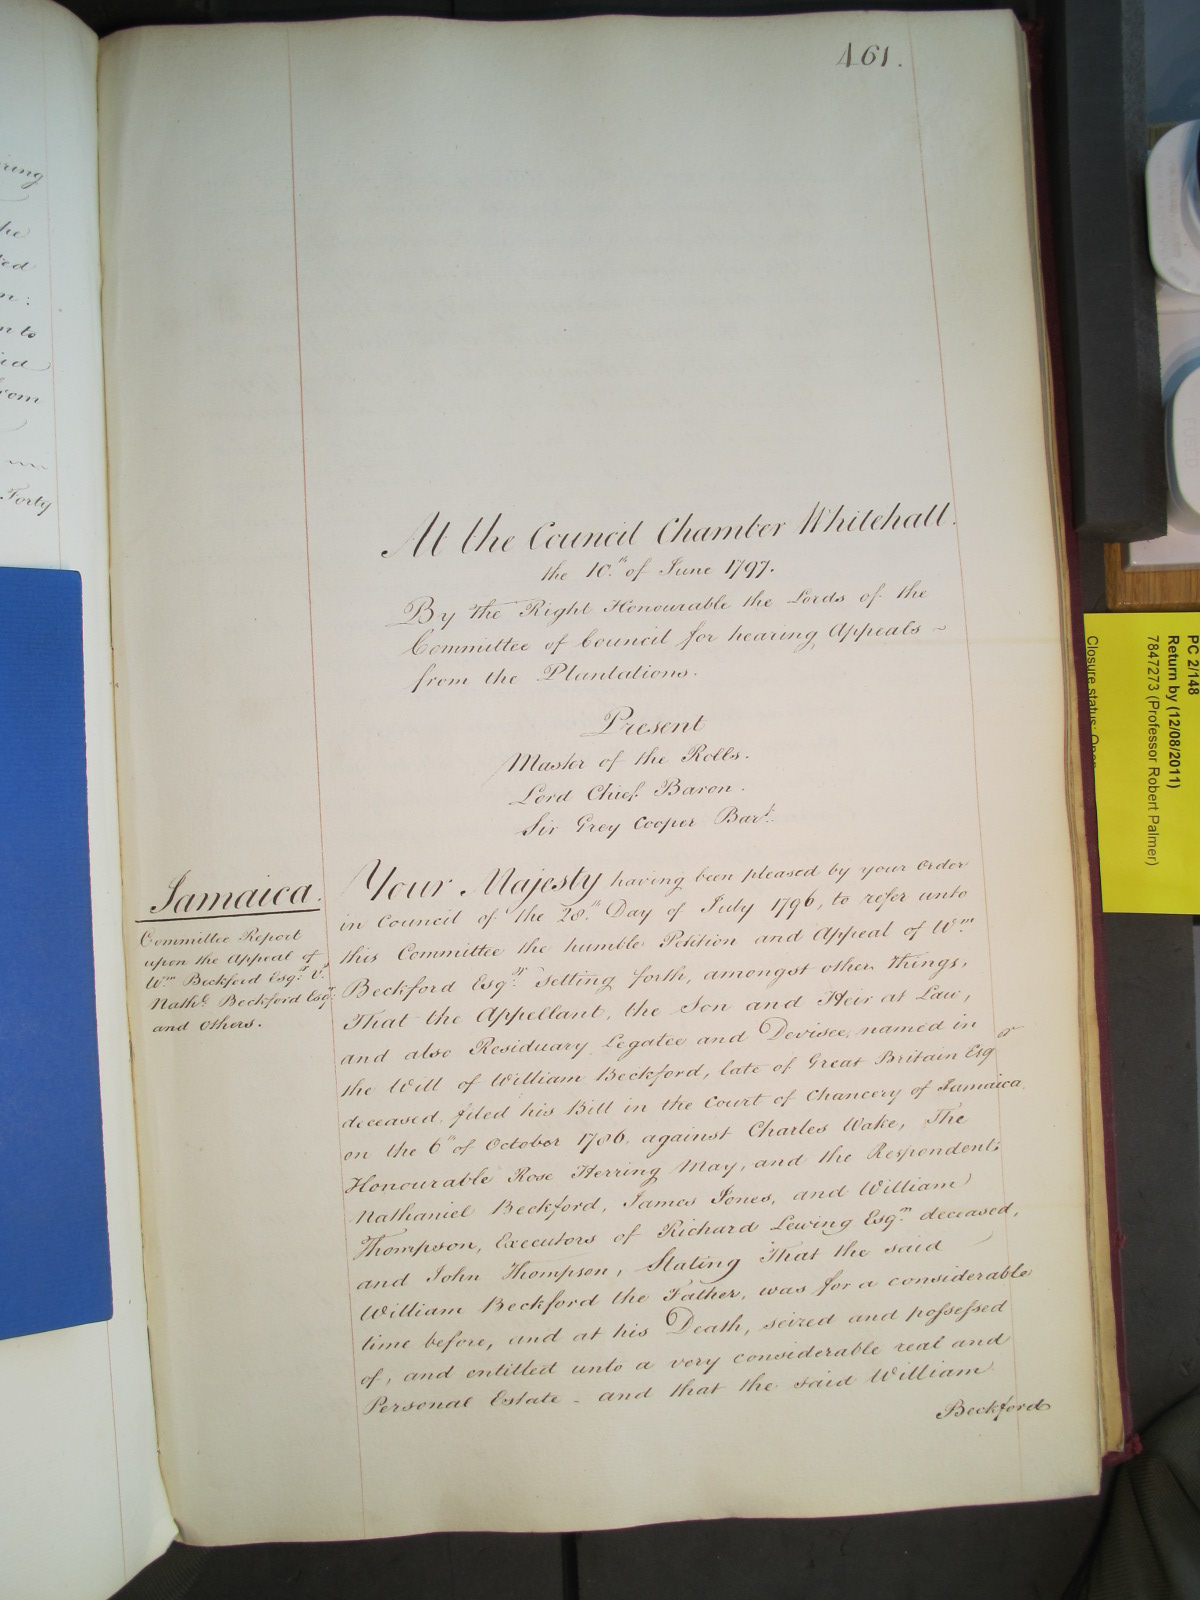 461.
ring
he
n to
Forty
At the Council Chamber Whitehall.
the 10.th of June 1797.
By the Right Honourable the Lords of the
Committee of Council for hearing Appeals ~
from the Plantations.
Present
Master of the Rolls.
Lord Chief Baron.
Sir Grey Cooper Bart.
Jamaica.
Committee Report
upon the Appeal of
Wm Beckford Esqr. V.s
Nathl. Beckford Esqr.
and others.
Your Majesty having been pleased by your Order
in Council of the 28.th Day of July 1796, to refer unto
this Committee the humble Petition and Appeal of Wm.
Beckford Esqr. Setting forth, amongst other things,
That the Appellant, the Son and Heir at Law,
and also Residuary Legatee and Devisee, named in
the Will of William Beckford, late of Great Britain Esqr
deceased, filed his Bill in the Court of Chancery of Jamaica
on the 6th of October 1786. against Charles Wake, The
Honourable Rose Herring May, and the Respondents
Nathaniel Beckford, James Jones, and William
Thompson, Executors of Richard Lewing Esqr. deceased,
and John Thompson, Stating That the said
William Beckford the Father, was for a considerable
time before, and at his Death, seized and possessed
of, and entitled unto a very considerable real and
Personal Estate - and that the said William
Beckford
PC 2/148
Return by (12/08/2011)
7847273 (Professor Robert Palmer)
Closure status: Open